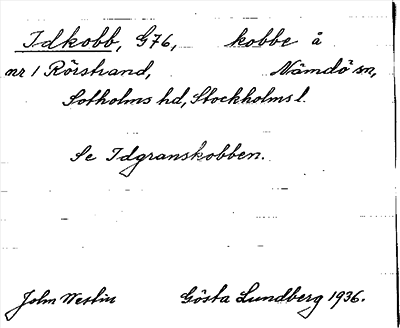 Idkobb, G76, kobbe å
nr 1 Rörstrand, Nämdö sn,
Sotholms hd, Stockholms l.
Se Idgranskobben.
John Westin Gösta Lundberg 1936.